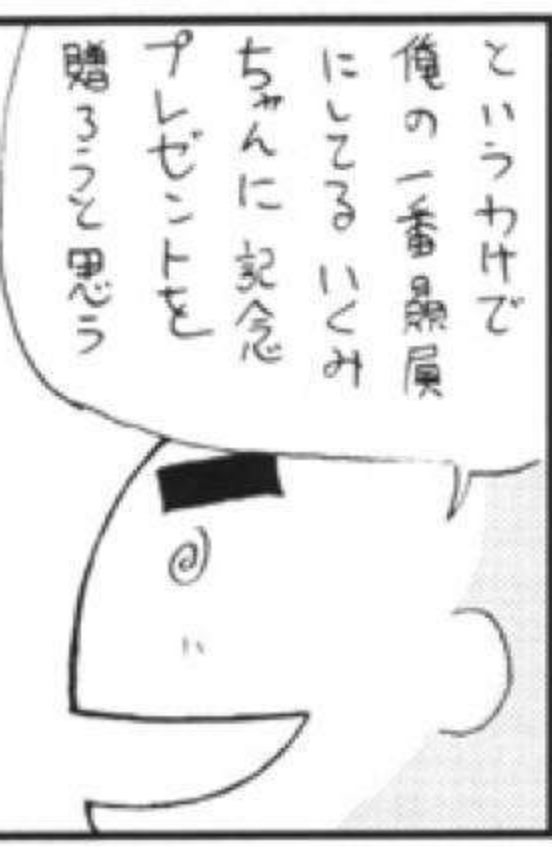 というわけで
俺の一番贔屓
にしてる いくみ
ちゃんに 記念
プレゼントを
贈ろうと思う